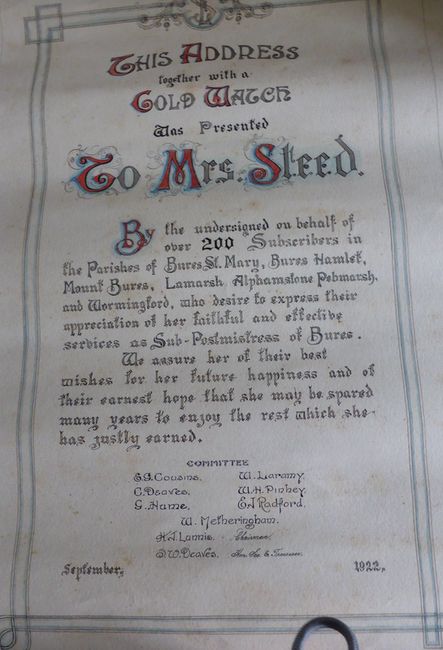 This Address
together with a
Gold Watch
Was Presented
To Mrs. Steed.
By the undersigned on behalf of
over 200 Subscribers in
the Parishes of Bures St. Mary, Bures Hamlet,
Mount Bures, Lamarsh, Alphamstone Pebmarsh,
and Wormingford, who desire to express their
appreciation of her faithful and effective
services as Sub-Postmistress of Bures.
We assure her of their best
wishes for her future happiness and of
their earnest hope that she may be spared
many years to enjoy the rest which she
has justly earned.
COMMITTEE
W. Laramy.
C. Deaves. W.H. Pinhey.
G. Hume. E.J. Radford.
W. Metheringham.
Chairman
D.W. Deaves. Hon. Sec. & Treasurer
September, 1922.